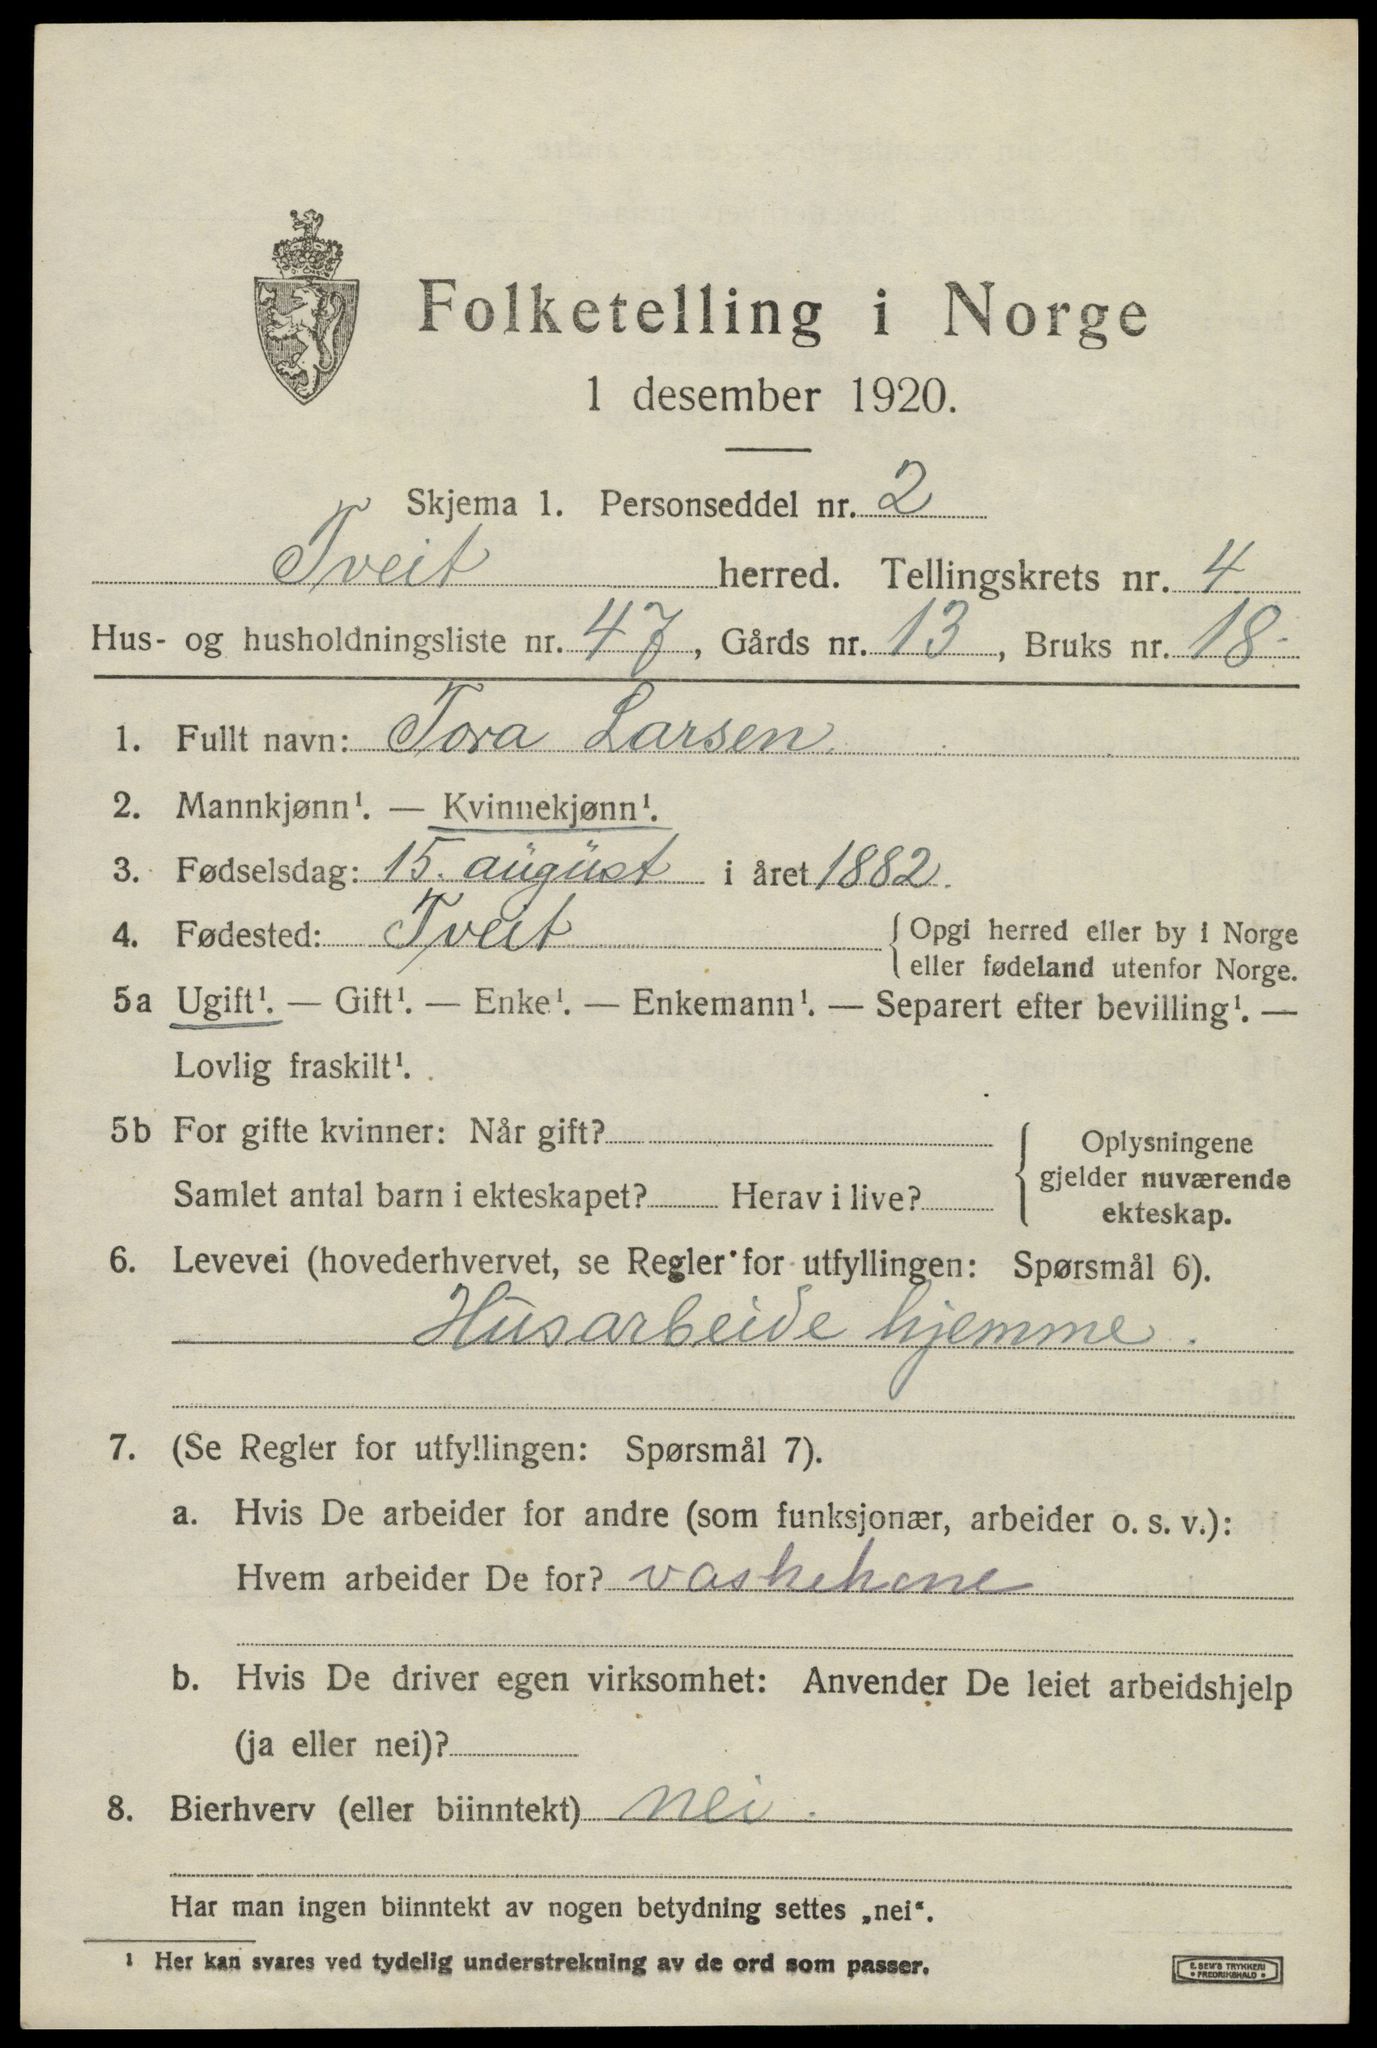 Folketelling i Norge
1 desember 1920.
Skjema 1. Personseddel nr. 2
Tveit herred. Tellingskrets nr. 4
Hus- og husholdningsliste nr. 47, Gårds nr. 13, Bruks nr. 18
1. Fullt navn: Tora Larsen.
2. Mannkjønn¹. — Kvinnekjønn¹.
3. Fødselsdag: 15. august i året 1882.
4. Fødested: Tveit { Opgi herred eller by i Norge
eller fødeland utenfor Norge.
5a Ugift¹. — Gift¹. — Enke¹. — Enkemann¹. — Separert efter bevilling¹. —
Lovlig fraskilt¹.
5b For gifte kvinner: Når gift?
Samlet antal barn i ekteskapet? Herav i live?
{ Oplysningene
gjelder nuværende
ekteskap.
6. Levevei (hovederhvervet, se Regler for utfyllingen: Spørsmål 6).
Husarbeide hjemme.
7. (Se Regler for utfyllingen: Spørsmål 7).
a. Hvis De arbeider for andre (som funksjonær, arbeider o. s. v.):
Hvem arbeider De for? vaskekone
b. Hvis De driver egen virksomhet: Anvender De leiet arbeidshjelp
(ja eller nei)?
8. Bierhverv (eller biinntekt) nei.
Har man ingen biinntekt av nogen betydning settes „nei“.
¹ Her kan svares ved tydelig understrekning av de ord som passer.
E. SEM'S TRYKKERI
• FREDRIKSHALD •